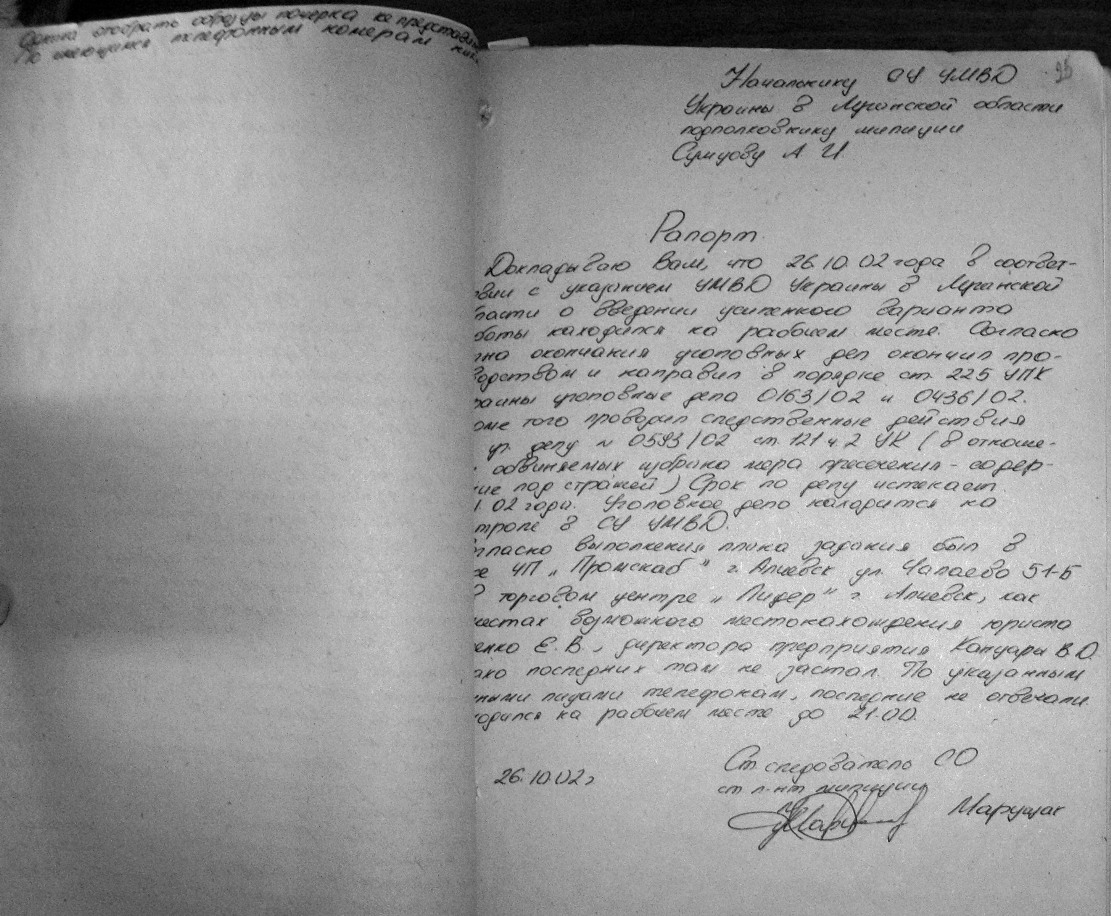 отобрать образцы почерка не представи
По имеющимся телефонным номерам
95
Начальнику СУ УМВД
Украины в Луганской области
подполковнику милиции
Сумцову А И
Рапорт.
Докладываю Вам, что 26.10.02 года в соответ-
твии с указанием УМВД Украины в Луганской
бласти о введении усиленного варианта
боты находился на рабочем месте. Согласно
ана окончания уголовных дел окончил про-
водством и направил в порядке ст. 225 УПК
раины уголовные дела 0163/02 и 0436/02.
оме того проводил следственные действия
уг. делу № 0593/02 ст. 121 ч. 2 УК (в отноше-
обвиняемых избрана мера пресечения - содер-
ние под стражей) Срок по делу истекает
1.02 года. Уголовное дело находится на
троле в СУ УМВД.
гласно выполнения плана задания был в
се ЧП „Промснаб" г. Алчевск ул. Чапаева 51-Б
в торговом центре „Лидер" г. Алчевск, как
местах возможного местонахождения юриста
енко Е. В., директора предприятия В. О.
ако последних там не застал. По указанным
ными лицами телефонам, последние не отвечали
ходился на рабочем месте до 21.00.
26.10.02г
Ст следователь СО
ст л-нт милиции
Марущак